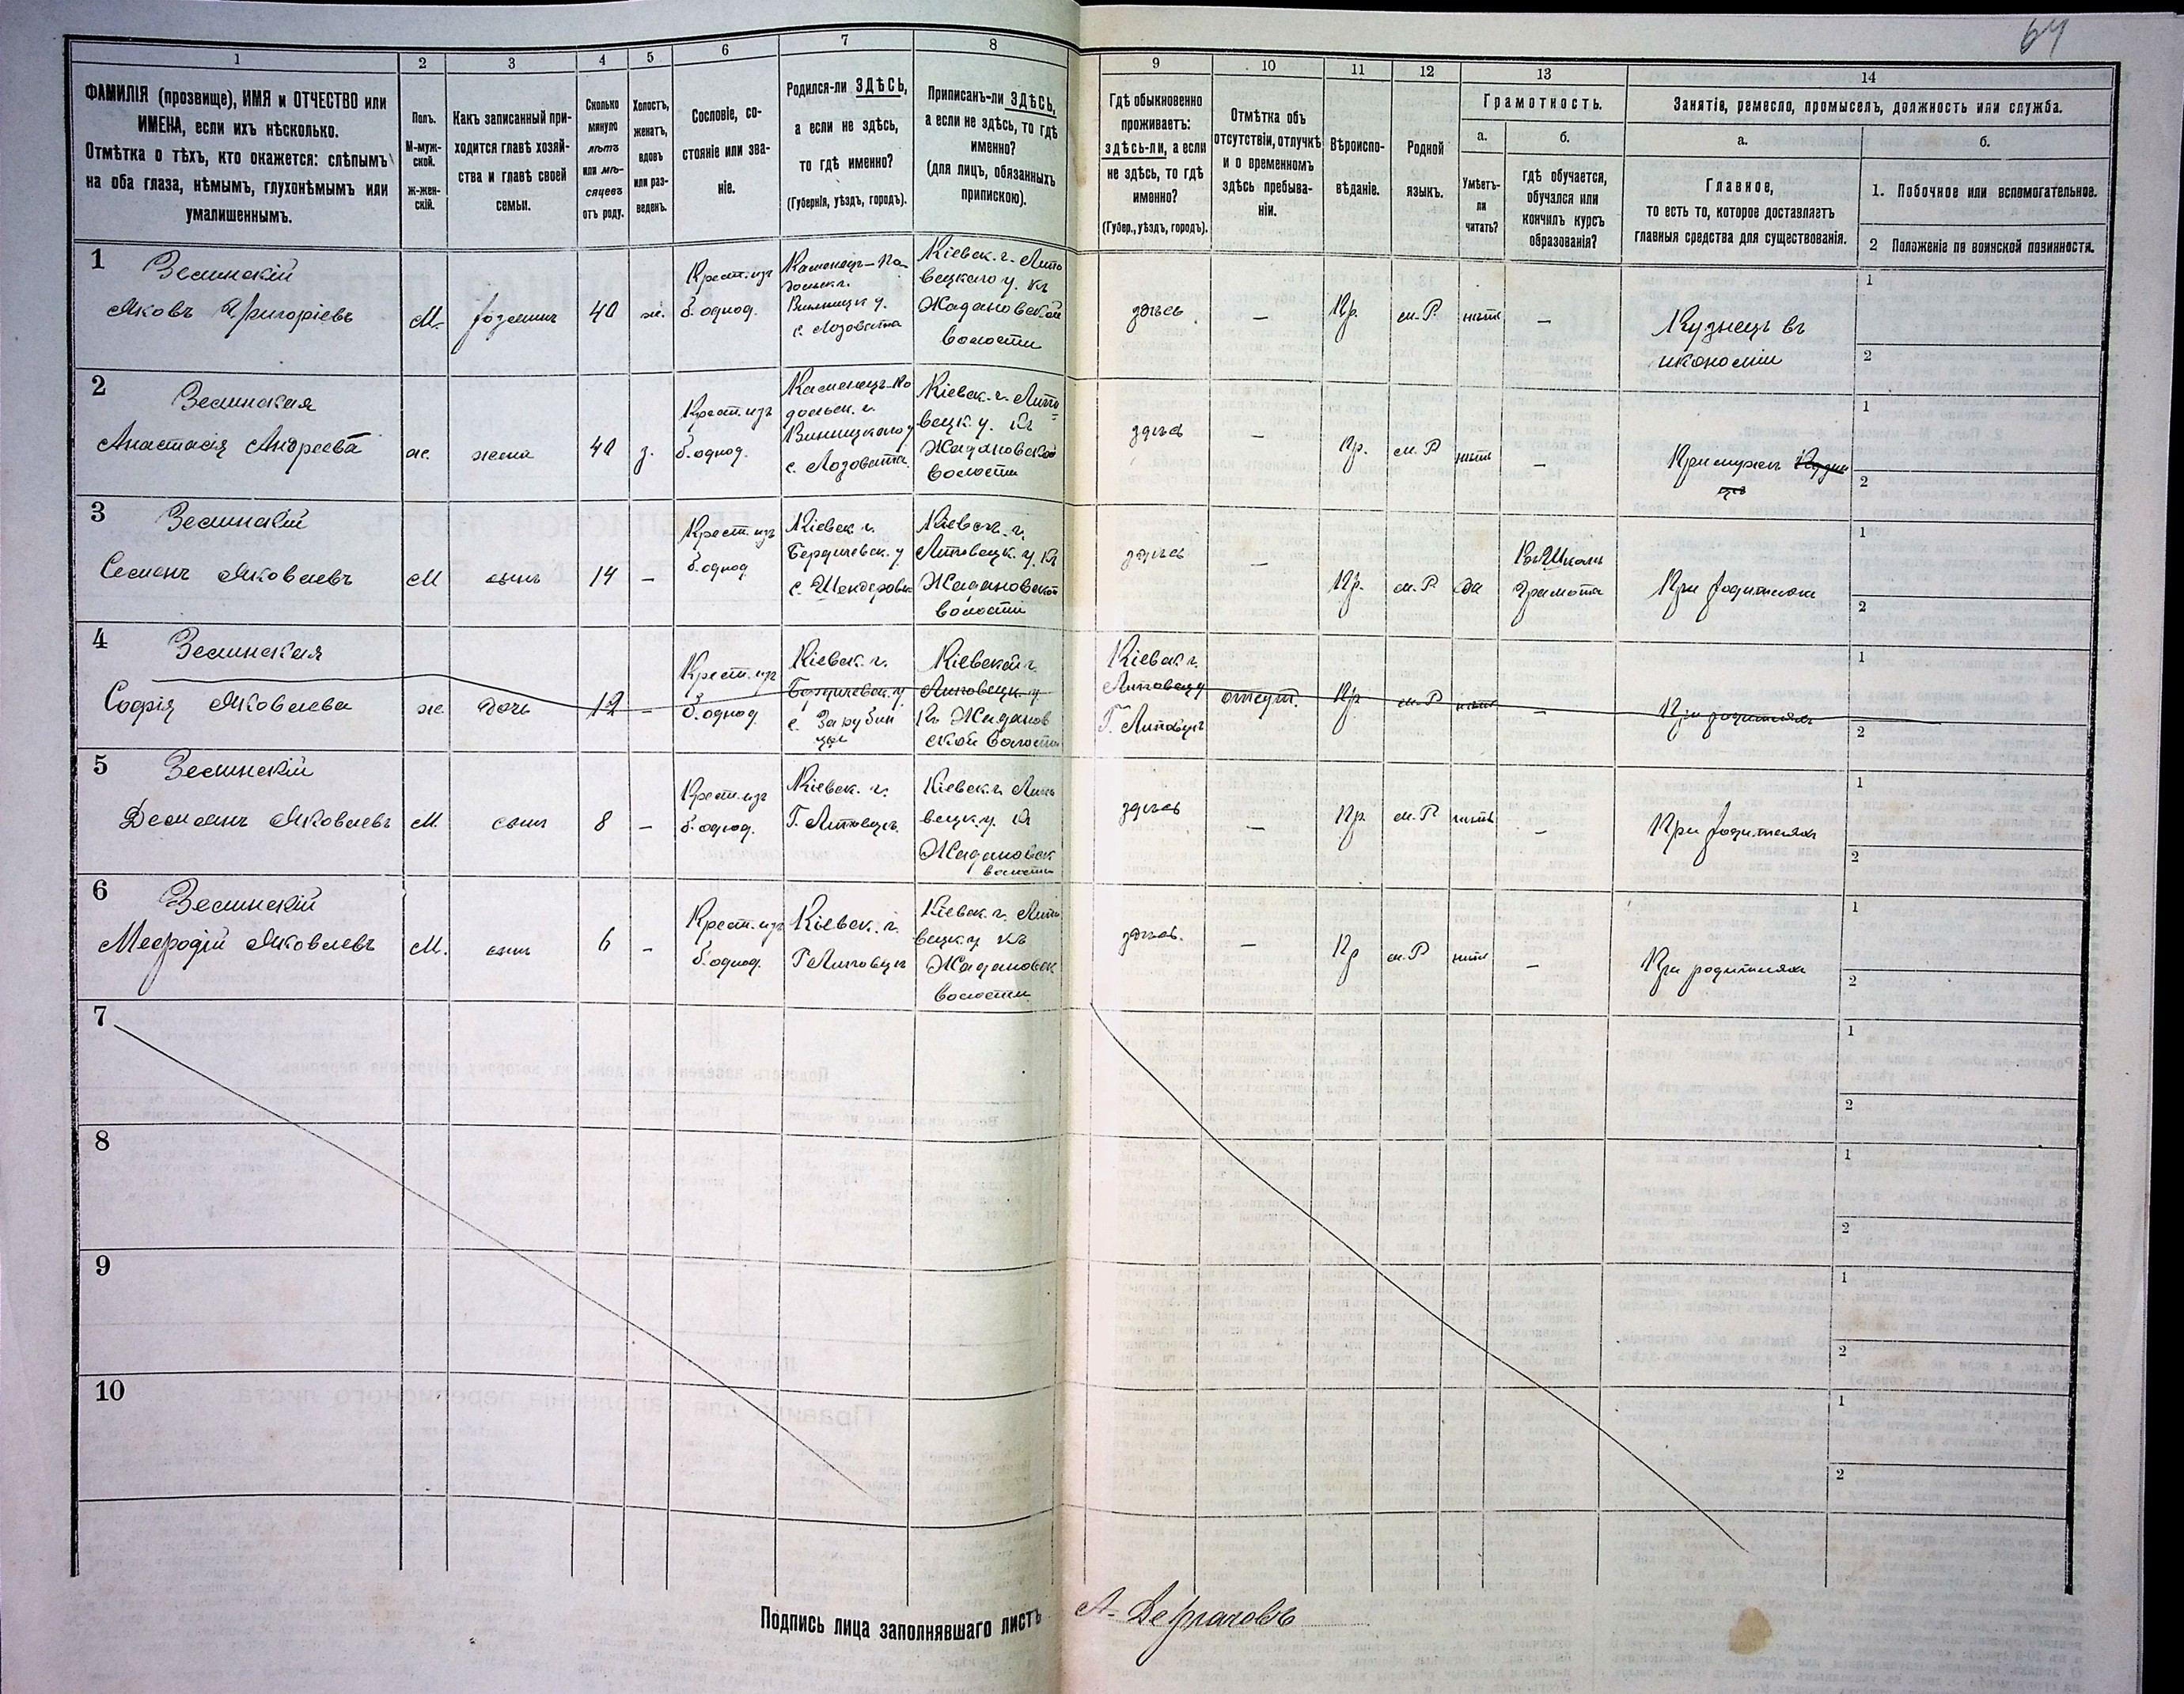 64
1
2
3
4
5
6
7
8
9
10
11
12
13
14
ФАМИЛІЯ (прозвище), ИМЯ и ОТЧЕСТВО или
ИМЕНА, если ихъ нѣсколько.
Отмѣтка о тѣхъ, кто окажется: слѣпымъ
на оба глаза, нѣмымъ, глухонѣмымъ или
умалишеннымъ.
Полъ.
М-муж-
ской.
ж-жен-
скій.
Какъ записанный при-
ходится главѣ хозяй-
ства и главѣ своей
семьи.
Сколько
минуло
лѣтъ
или мѣ-
сяцевъ
отъ роду.
Холостъ,
женатъ,
вдовъ
или раз-
веденъ.
Сословіе, со-
стояніе или зва-
ніе.
Родился-ли ЗДѢСЬ,
а если не здѣсь,
то гдѣ именно?
(Губернія, уѣздъ, городъ).
Приписанъ-ли ЗДѢСЬ,
а если не здѣсь, то гдѣ
именно?
(для лицъ, обязанныхъ
припискою).
Гдѣ обыкновенно
проживаетъ:
здѣсь-ли, а если
не здѣсь, то гдѣ
именно?
(Губер., уѣздъ, городъ).
Отмѣтка объ
отсутствіи, отлучкѣ
и о временномъ
здѣсь пребыва-
ніи.
Вѣроиспо-
вѣданіе.
Родной
языкъ.
Грамотность.
а.
б.
Умѣетъ-
ли
читать?
гдѣ обучается,
обучался или
кончилъ курсъ
образованія?
Занятіе, ремесло, промыселъ, должность или служба.
а.
б.
Главное,
то есть то, которое доставляетъ
главныя средства для существованія.
1. Побочное или вспомогательное.
2 Положеніе по воинской повинности.
1
Зелинскій
Яковъ Григоріевъ
М.
хозяинъ
40
ж.
Крест. изъ
б. однод.
Каменецъ-По
дольск г.
Винницк у.
с. Лозоватa
Кіевск. г. Липо
вецкаго у. къ
Жадановской
волости
здѣсь
—
Пр.
м. Р.
нѣтъ
—
Кузнецъ въ
икономіи
1
2
2
Зелинская
Анастасія Андреева
ж.
жена
40
з.
Крест. изъ
б. однод.
Каменецъ-По
дольск. г.
Винницкаго у
с. Лозовата.
Кіевск. г. Липо-
вецк у. къ
Жадановской
волости
здѣсь
—
Пр.
м. Р
нѣтъ
—
При мужѣ
1
2
3
Зелинскій
Семенъ Яковлевъ
М
сынъ
14
—
Крест. изъ
б. однод
Кіевск г.
Бердичевск. у
Кіевск. г.
Липовецк. у. къ
Жадановской
волости
здѣсь
—
Пр.
м. Р
да
Въ Школѣ
Грамоты
При родителяхъ
1
2
4
Зелинская
Софія Яковлева
ж
дочь
12
—
Крест. изъ
б. однод
Кіевск. г.
Бердичевск. у
с. Зарубин
цы
Кіевской г.
Липовецк. у
къ Жаданов
ской волости
Кіевск г.
Липовец у
Г. Липовецъ
отсут.
Пр
м. Р
нѣтъ
—
При родителяхъ
1
2
5
Зелинскій
Демьянъ Яковлевъ
М.
сынъ
8
—
Крест. изъ
б. однод.
Кіевск. г.
Г. Липовецъ.
Кіевск. г. Липо
вецк. у. къ
Жадановск
волости
здѣсь
—
Пр
м. Р
нѣтъ
—
При родителяхъ
1
2
6
Зелинскій
Мефодій Яковлевъ
М.
сынъ
6
—
Крест. изъ
б. однод.
Кіевск. г.
Г Липовецъ
Кіевск. г. Липо
вецк у къ
Жадановск
волости
здѣсь.
—
Пр
м. Р
нѣтъ
—
При родителяхъ
1
2
7
1
2
8
1
2
9
1
2
10
1
2
Подпись лица заполнявшаго листъ